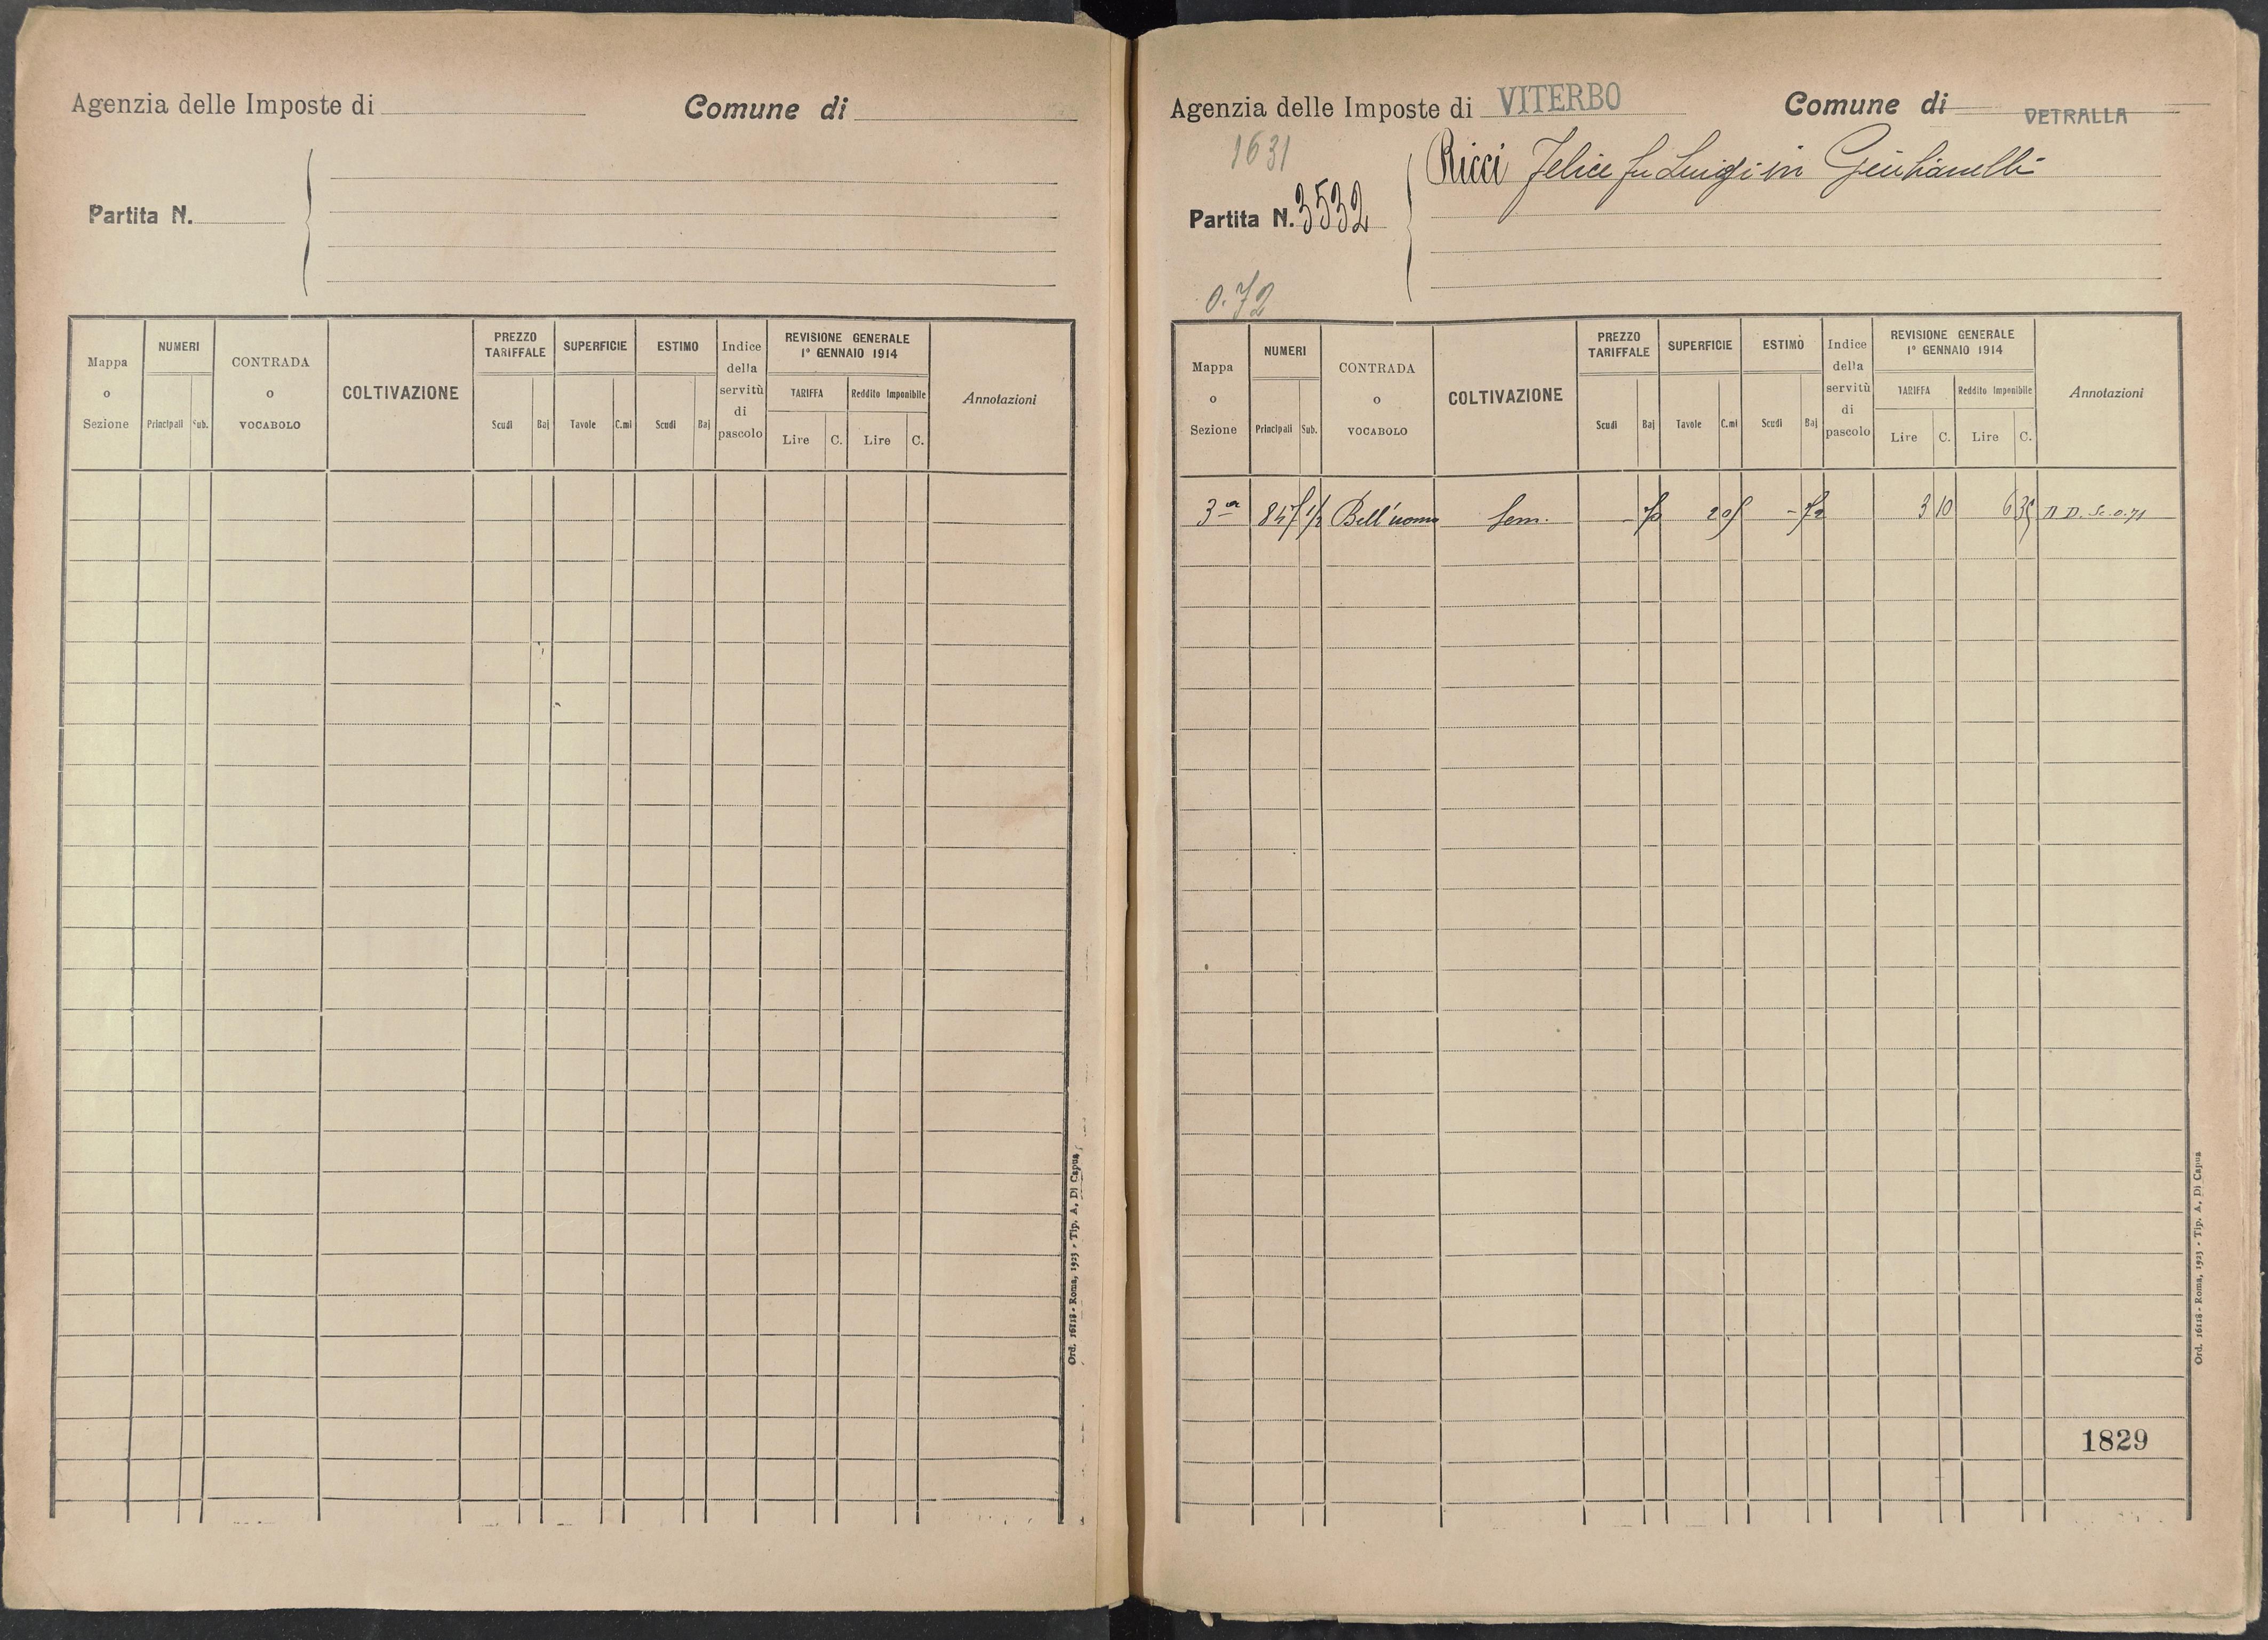 Agenzia delle Imposte di
Comune di
Partita N.
Mappa o Sezione
NUMERI
Principali
Sub.
CONTRADA o VOCABOLO
COLTIVAZIONE
PREZZO TARIFFALE
Scudi
Baj
SUPERFICIE
Tavole
C.mi
ESTIMO
Scudi
Baj
Indice della servitù di pascolo
REVISIONE GENERALE
1° GENNAIO 1914
TARIFFA
Lire
C.
Reddito Imponibile
Lire
C.
Annotazioni
Ord. 16118 - Roma, 1923 - Tip. A. Di Capua
Agenzia delle Imposte di VITERBO
Comune di VETRALLA
1631
Ricci Felice fu Luigi in
Partita N. 3532
0.72
Mappa o Sezione
NUMERI
Principali
Sub.
CONTRADA o VOCABOLO
COLTIVAZIONE
PREZZO TARIFFALE
Scudi
Baj
SUPERFICIE
Tavole
C.mi
ESTIMO
Scudi
Baj
Indice della servitù di pascolo
REVISIONE GENERALE
1° GENNAIO 1914
TARIFFA
Lire
C.
Reddito Imponibile
Lire
C.
Annotazioni
3a Bell'uomo Sem. - 72 3 10 6 35
1829
Ord. 16118 - Roma, 1923 - Tip. A. Di Capua